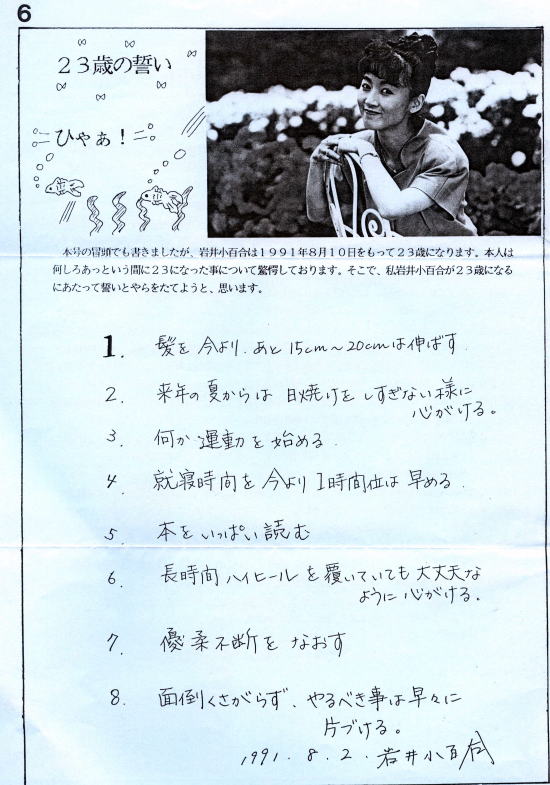 6
23歳の誓い
ひゃぁ！
本号の冒頭でも書きましたが、岩井小百合は1991年8月10日をもって23歳になります。本人は
何しろあっという間に23になった事について驚愕しております。そこで、私岩井小百合が23歳になる
にあたって誓いとやらをたてようと、思います。
1. 髪を今より.あと15cm〜20cmは伸ばす
2. 来年の夏からは 日焼けをしすぎない様に
心がける。
3. 何か運動を始める.
4. 就寝時間を今より1時間位は早める.
5. 本をいっぱい読む
6. 長時間ハイヒールを履いていても大丈夫な
ように心がける。
7. 優柔不断をなおす
8. 面倒くさがらず、やるべき事は早々に
片づける。
1991.8.2.岩井小百合